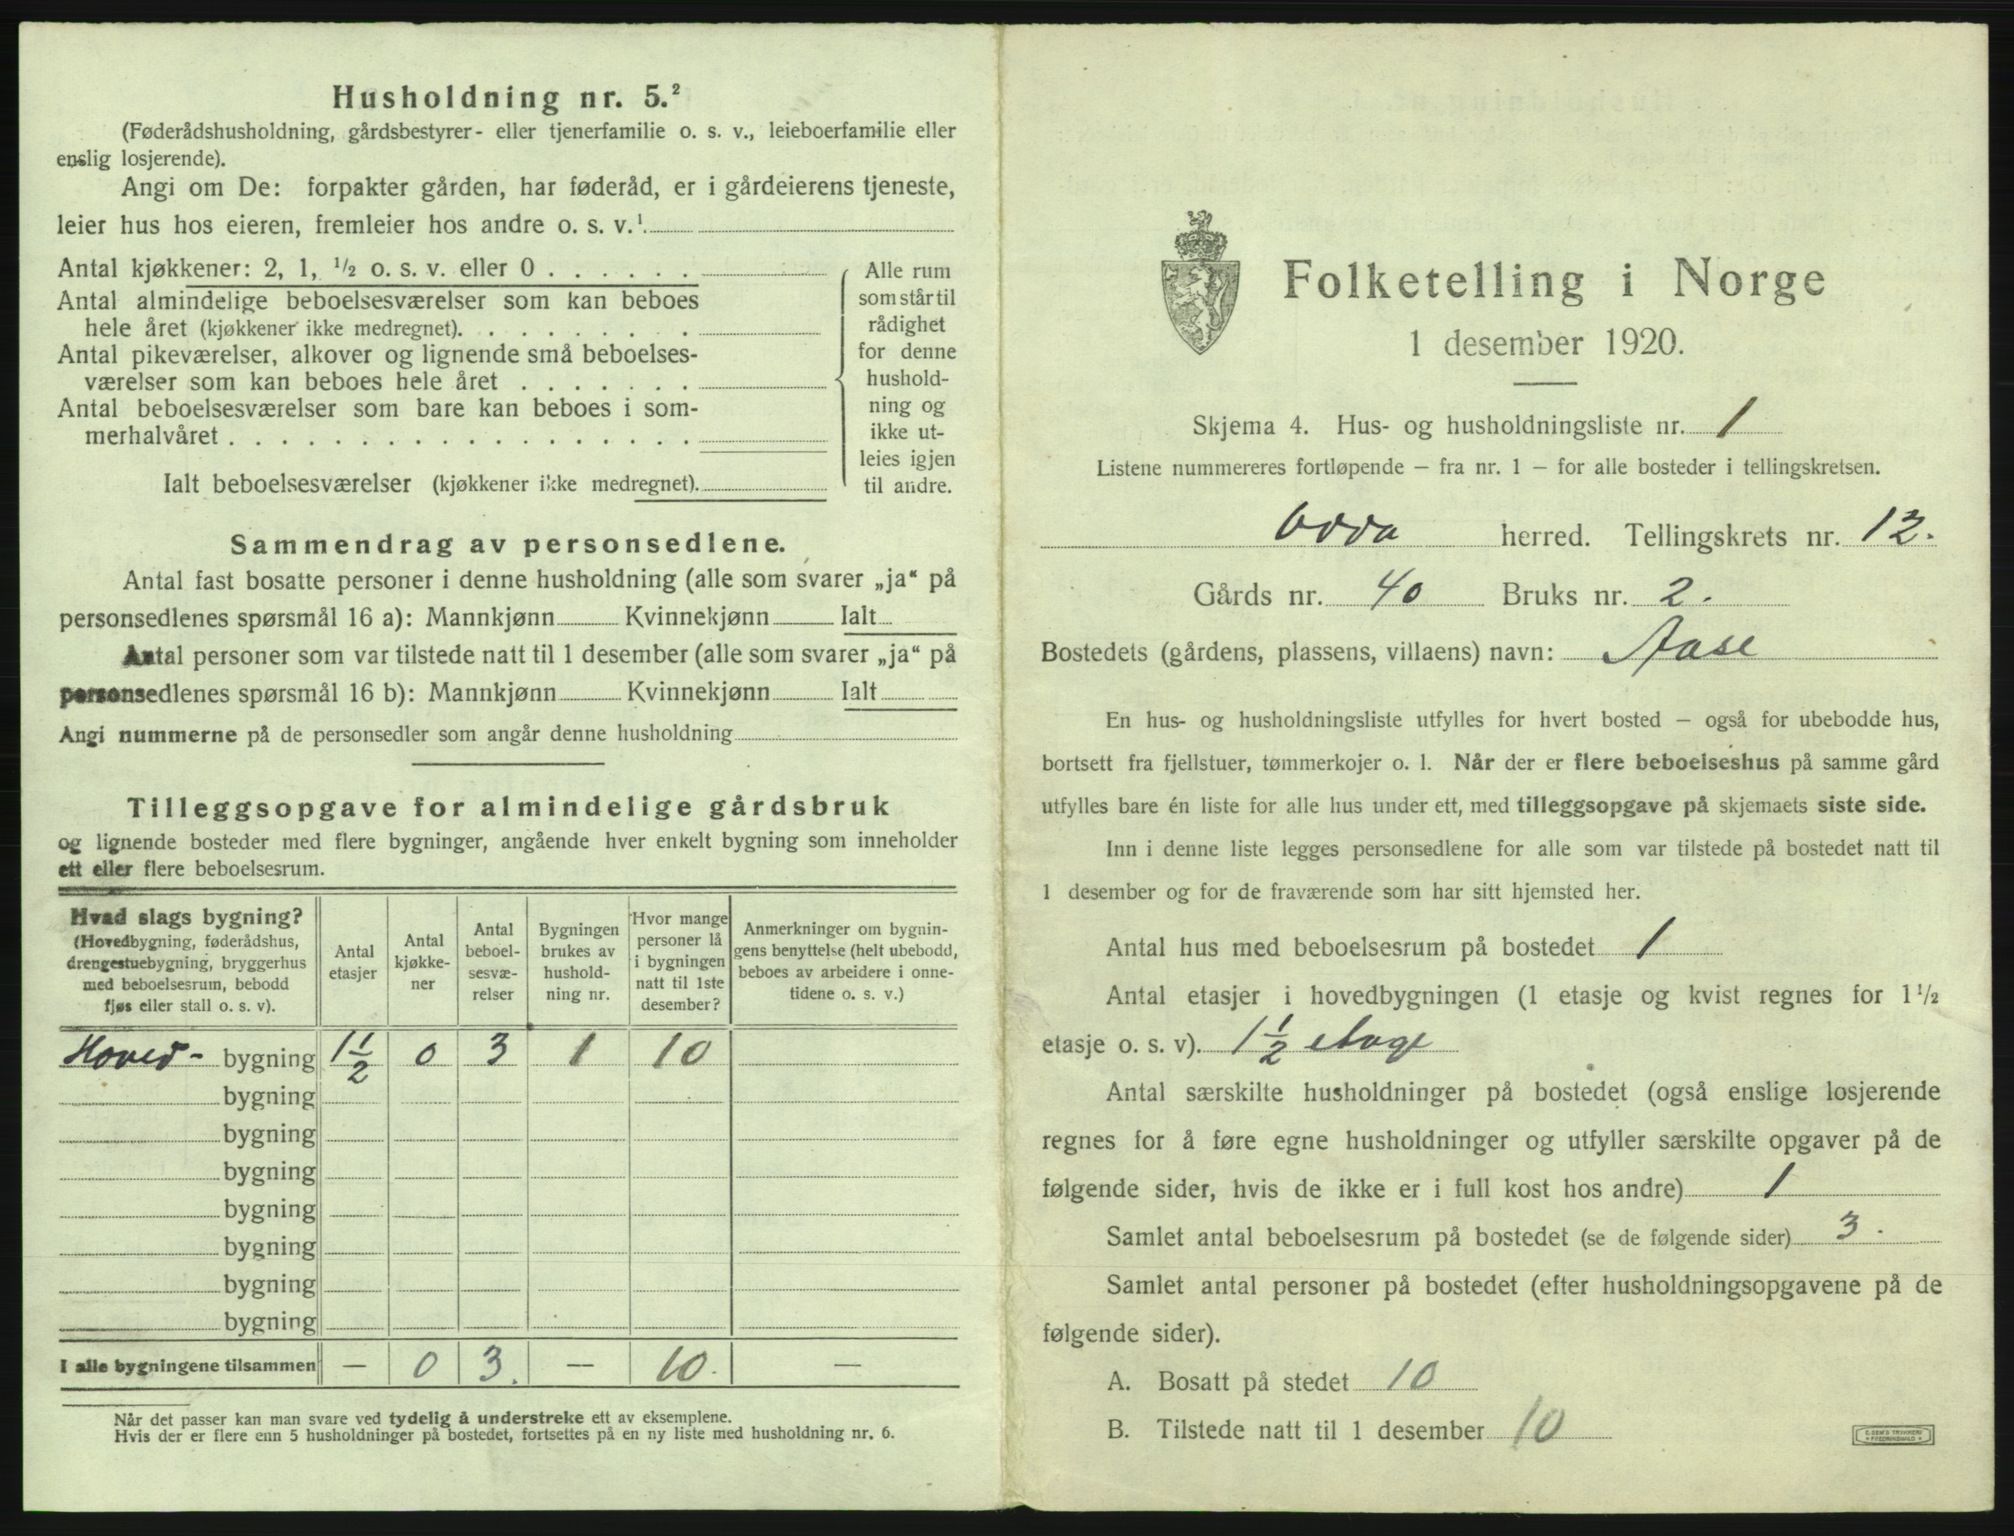 Husholdning nr. 5.²
(Føderådshusholdning, gårdsbestyrer- eller tjenerfamilie o. s. v., leieboerfamilie eller
enslig losjerende).
Angi om De: forpakter gården, har føderåd, er i gårdeierens tjeneste,
leier hus hos eieren, fremleier hos andre o. s. v.¹
Antal kjøkkener: 2, 1, ½ o. s. v. eller 0 . . . . . .
Antal almindelige beboelsesværelser som kan beboes
hele året (kjøkkener ikke medregnet). . . . . . . .
Antal pikeværelser, alkover og lignende små beboelses-
værelser som kan beboes hele året . . . . . . .
Antal beboelsesværelser som bare kan beboes i som-
merhalvåret . . . . . . . . . . . . . . . . . .
Ialt beboelsesværelser (kjøkkener ikke medregnet).
Alle rum
som står til
rådighet
for denne
hushold-
ning og
ikke ut-
leies igjen
til andre.
Sammendrag av personsedlene.
Antal fast bosatte personer i denne husholdning (alle som svarer „ja“ på
personsedlenes spørsmål 16 a): Mannkjønn Kvinnekjønn Ialt
Antal personer som var tilstede natt til 1 desember (alle som svarer „ja“ på
personsedlenes spørsmål 16 b): Mannkjønn Kvinnekjønn Ialt
Angi nummerne på de personsedler som angår denne husholdning
Tilleggsopgave for almindelige gårdsbruk
og lignende bosteder med flere bygninger, angående hver enkelt bygning som inneholder
ett eller flere beboelsesrum.
Hvad slags bygning?
(Hovedbygning, føderådshus,
drengestuebygning, bryggerhus
med beboelsesrum, bebodd
fjøs eller stall o. s. v).
Antal
etasjer
Antal
kjøkke-
ner
Antal
beboel-
sesvæ-
relser
Bygningen
brukes av
hushold-
ning nr.
Hvor mange
personer lå
i bygningen
natt til 1ste
desember?
Anmerkninger om bygnin-
gens benyttelse (helt ubebodd,
beboes av arbeidere i onne-
tidene o. s. v.)
Hoved- bygning 1½ 0 3 1 10
bygning
bygning
bygning
bygning
bygning
bygning
bygning
I alle bygningene tilsammen — 0 3. — 10. —
Når det passer kan man svare ved tydelig å understreke ett av eksemplene.
Hvis der er flere enn 5 husholdninger på bostedet, fortsettes på en ny liste med husholdning nr. 6.
Folketelling i Norge
1 desember 1920.
Skjema 4. Hus- og husholdningsliste nr. 1
Listene nummereres fortløpende – fra nr. 1 – for alle bosteder i tellingskretsen.
Odda herred. Tellingskrets nr. 12.
Gårds nr. 40 Bruks nr. 2.
Bostedets (gårdens, plassens, villaens) navn: Aase
En hus- og husholdningsliste utfylles for hvert bosted – også for ubebodde hus,
bortsett fra fjellstuer, tømmerkojer o. l. Når der er flere beboelseshus på samme gård
utfylles bare én liste for alle hus under ett, med tilleggsopgave på skjemaets siste side.
Inn i denne liste legges personsedlene for alle som var tilstede på bostedet natt til
1 desember og for de fraværende som har sitt hjemsted her.
Antal hus med beboelsesrum på bostedet 1
Antal etasjer i hovedbygningen (1 etasje og kvist regnes for 1½
etasje o. s. v). 1½ etage
Antal særskilte husholdninger på bostedet (også enslige losjerende
regnes for å føre egne husholdninger og utfyller særskilte opgaver på de
følgende sider, hvis de ikke er i full kost hos andre) 1
Samlet antal beboelsesrum på bostedet (se de følgende sider) 3.
Samlet antal personer på bostedet (efter husholdningsopgavene på de
følgende sider).
A. Bosatt på stedet 10
B. Tilstede natt til 1 desember 10